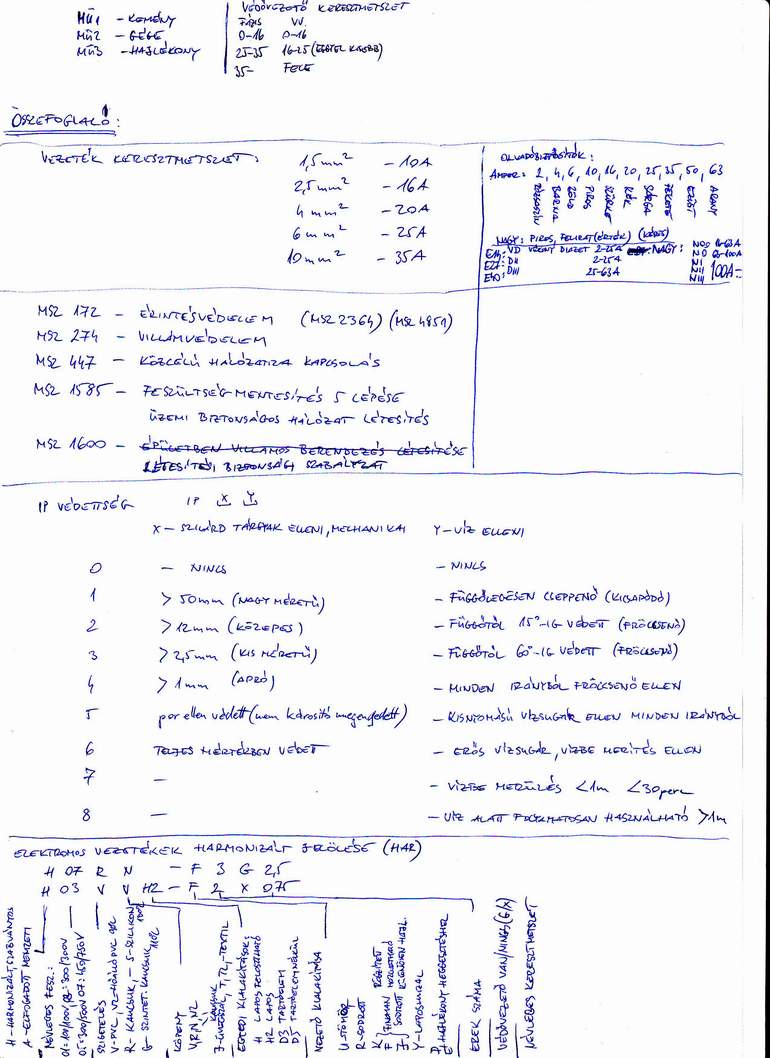 MŰ1 - KEMÉNY
MŰ2 - GÉGE
MŰ3 - HAJLÉKONY
VÉDŐVEZETŐ KERESZTMETSZET
FÁZIS VV.
0-16 0-16
25-35 16-25 (EGGYEL KISEBB)
35- FELE
ÖSSZEFOGLALÓ:
VEZETÉK KERESZTMETSZET:
1,5mm² - 10A
2,5mm² - 16A
4mm² - 20A
6mm² - 25A
10mm² - 35A
OLVADÓBIZTOSÍTÓK:
AMPER: 2, 4, 6, 10, 16, 20, 25, 35, 50, 63
RÓZSASZÍN
BARNA
ZÖLD
PIROS
SZÜRKE
KÉK
SÁRGA
FEKETE
EZÜST
ARANY
NAGY: PIROS, FELIRAT (ÉRTÉK) (KÉSES)
E14: VD 2-25A NAGY: N00 16-63A
E27: DII 2-25A N0
E40: DIII 25-63A NI
NII 100A-
NIII
MSZ 172 - ÉRINTÉSVÉDELEM (MSZ 2364) (MSZ 4851)
MSZ 274 - VILLÁMVÉDELEM
MSZ 447 - KÖZCÉLÚ HÁLÓZATRA KAPCSOLÁS
MSZ 1585 - FESZÜLTSÉG MENTESÍTÉS 5 LÉPÉSE
ÜZEMI BIZTONSÁGOS HÁLÓZAT LÉTESÍTÉS
MSZ 1600 - ÉPÜLETBEN VILLAMOS BERENDEZÉS LÉTESÍTÉSE
LÉTESÍTÉSI BIZTONSÁGI SZABÁLYZAT
IP VÉDETTSÉG IP X Y
X - SZILÁRD TÁRGYAK ELLENI, MECHANIKAI Y - VÍZ ELLENI
0 - NINCS - NINCS
1 > 50mm (NAGY MÉRETŰ) - FÜGGŐLEGESEN CSEPPENŐ (KICSAPÓDÓ)
2 > 12mm (KÖZEPES) - FÜGGŐTŐL 15°-IG VÉDETT (FRÖCCSENŐ)
3 > 2,5mm (KIS MÉRETŰ) - FÜGGŐTŐL 60°-IG VÉDETT (FRÖCCSENŐ)
4 > 1mm (APRÓ) - MINDEN IRÁNYBÓL FRÖCCSENŐ ELLEN
5 por ellen védett (nem károsító megengedett) - KISNYOMÁSÚ VÍZSUGÁR ELLEN MINDEN IRÁNYBÓL
6 TELJES MÉRTÉKBEN VÉDETT - ERŐS VÍZSUGÁR, VÍZBE MERÍTÉS ELLEN
7 - - VÍZBE MERÜLÉS <1m <30perc
8 - - VÍZ ALATT FOLYAMATOSAN HASZNÁLHATÓ >1m
ELEKTROMOS VEZETÉKEK HARMONIZÁLT JELÖLÉSE (HAR)
H 07 R N - F 3 G 2,5
H 03 V V H2 - F 2 X 0,75
H - HARMONIZÁLT, SZABVÁNYOS
A - ELFOGADOTT NEMZETI
NÉVLEGES FESZ.:
01: 100/100V, 03: 300/300V
05: 300/500V 07: 450/750V
SZIGETELÉS
V - PVC, V2 - HŐÁLLÓ PVC
R - KAUCSUK, - S - SZILIKON
G - SZINTET. KAUCSUK
KÖPENY
V, R, N, V2
KAUCSUK
J - ÜVEGSZÁL, T, T2, - TEXTIL
EGYEDI KIALAKÍTÁSOK:
H LAPOS FELOSZTHATÓ
H2 LAPOS
D3 TARTÓELEM
D5 TARTÓELEM NÉLKÜL
VEZETŐ KIALAKÍTÁSA
U - TÖMÖR
R - SODROTT
K RÖGZÍTETT
F FINOMAN HAJLÍTHATÓ
SODROTT KÜLÖNÖSEN HAJL.
Y - LAPOSHUZAL
HAJLÉKONY HEGESZTÉSHEZ
EREK SZÁMA
VÉDŐVEZETŐ VAN/NINCS (G/X)
NÉVLEGES KERESZTMETSZET